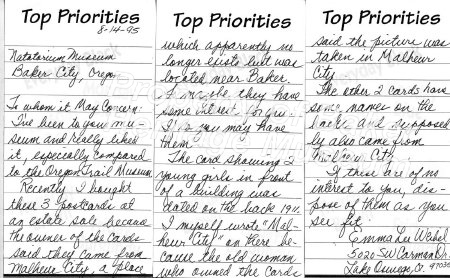 Top Priorities
8-14-95
Natatorium Museum
Baker City, Oregon
To whom it May Concern:
I've been to you mu-
seum and really liked
it, especially compared
to the Oregon Trail Museum.
Recently I bought
these 3 postcards at
an estate sale because
the owner of the cards
said they came from
Malheur City, a place
Top Priorities
which apparently no
longer exists but was
located near Baker.
they have
some interest for you.
you may have
them.
The card showing 2
young girls in front
of a building was
dated on the back 1911.
I myself wrote "Mal-
heur City" on there be-
cause the old woman
who owned the cards
Top Priorities
said the picture was
taken in Malheur
City.
The other 2 cards have
some names on the
backs and supposed
ly also came from
Malheur City.
If these are of no
interest to you, dis-
pose of them as you
see fit.
Emma Lee
5020 SW Carman Dr.
Lake Oswego, Or. 97035